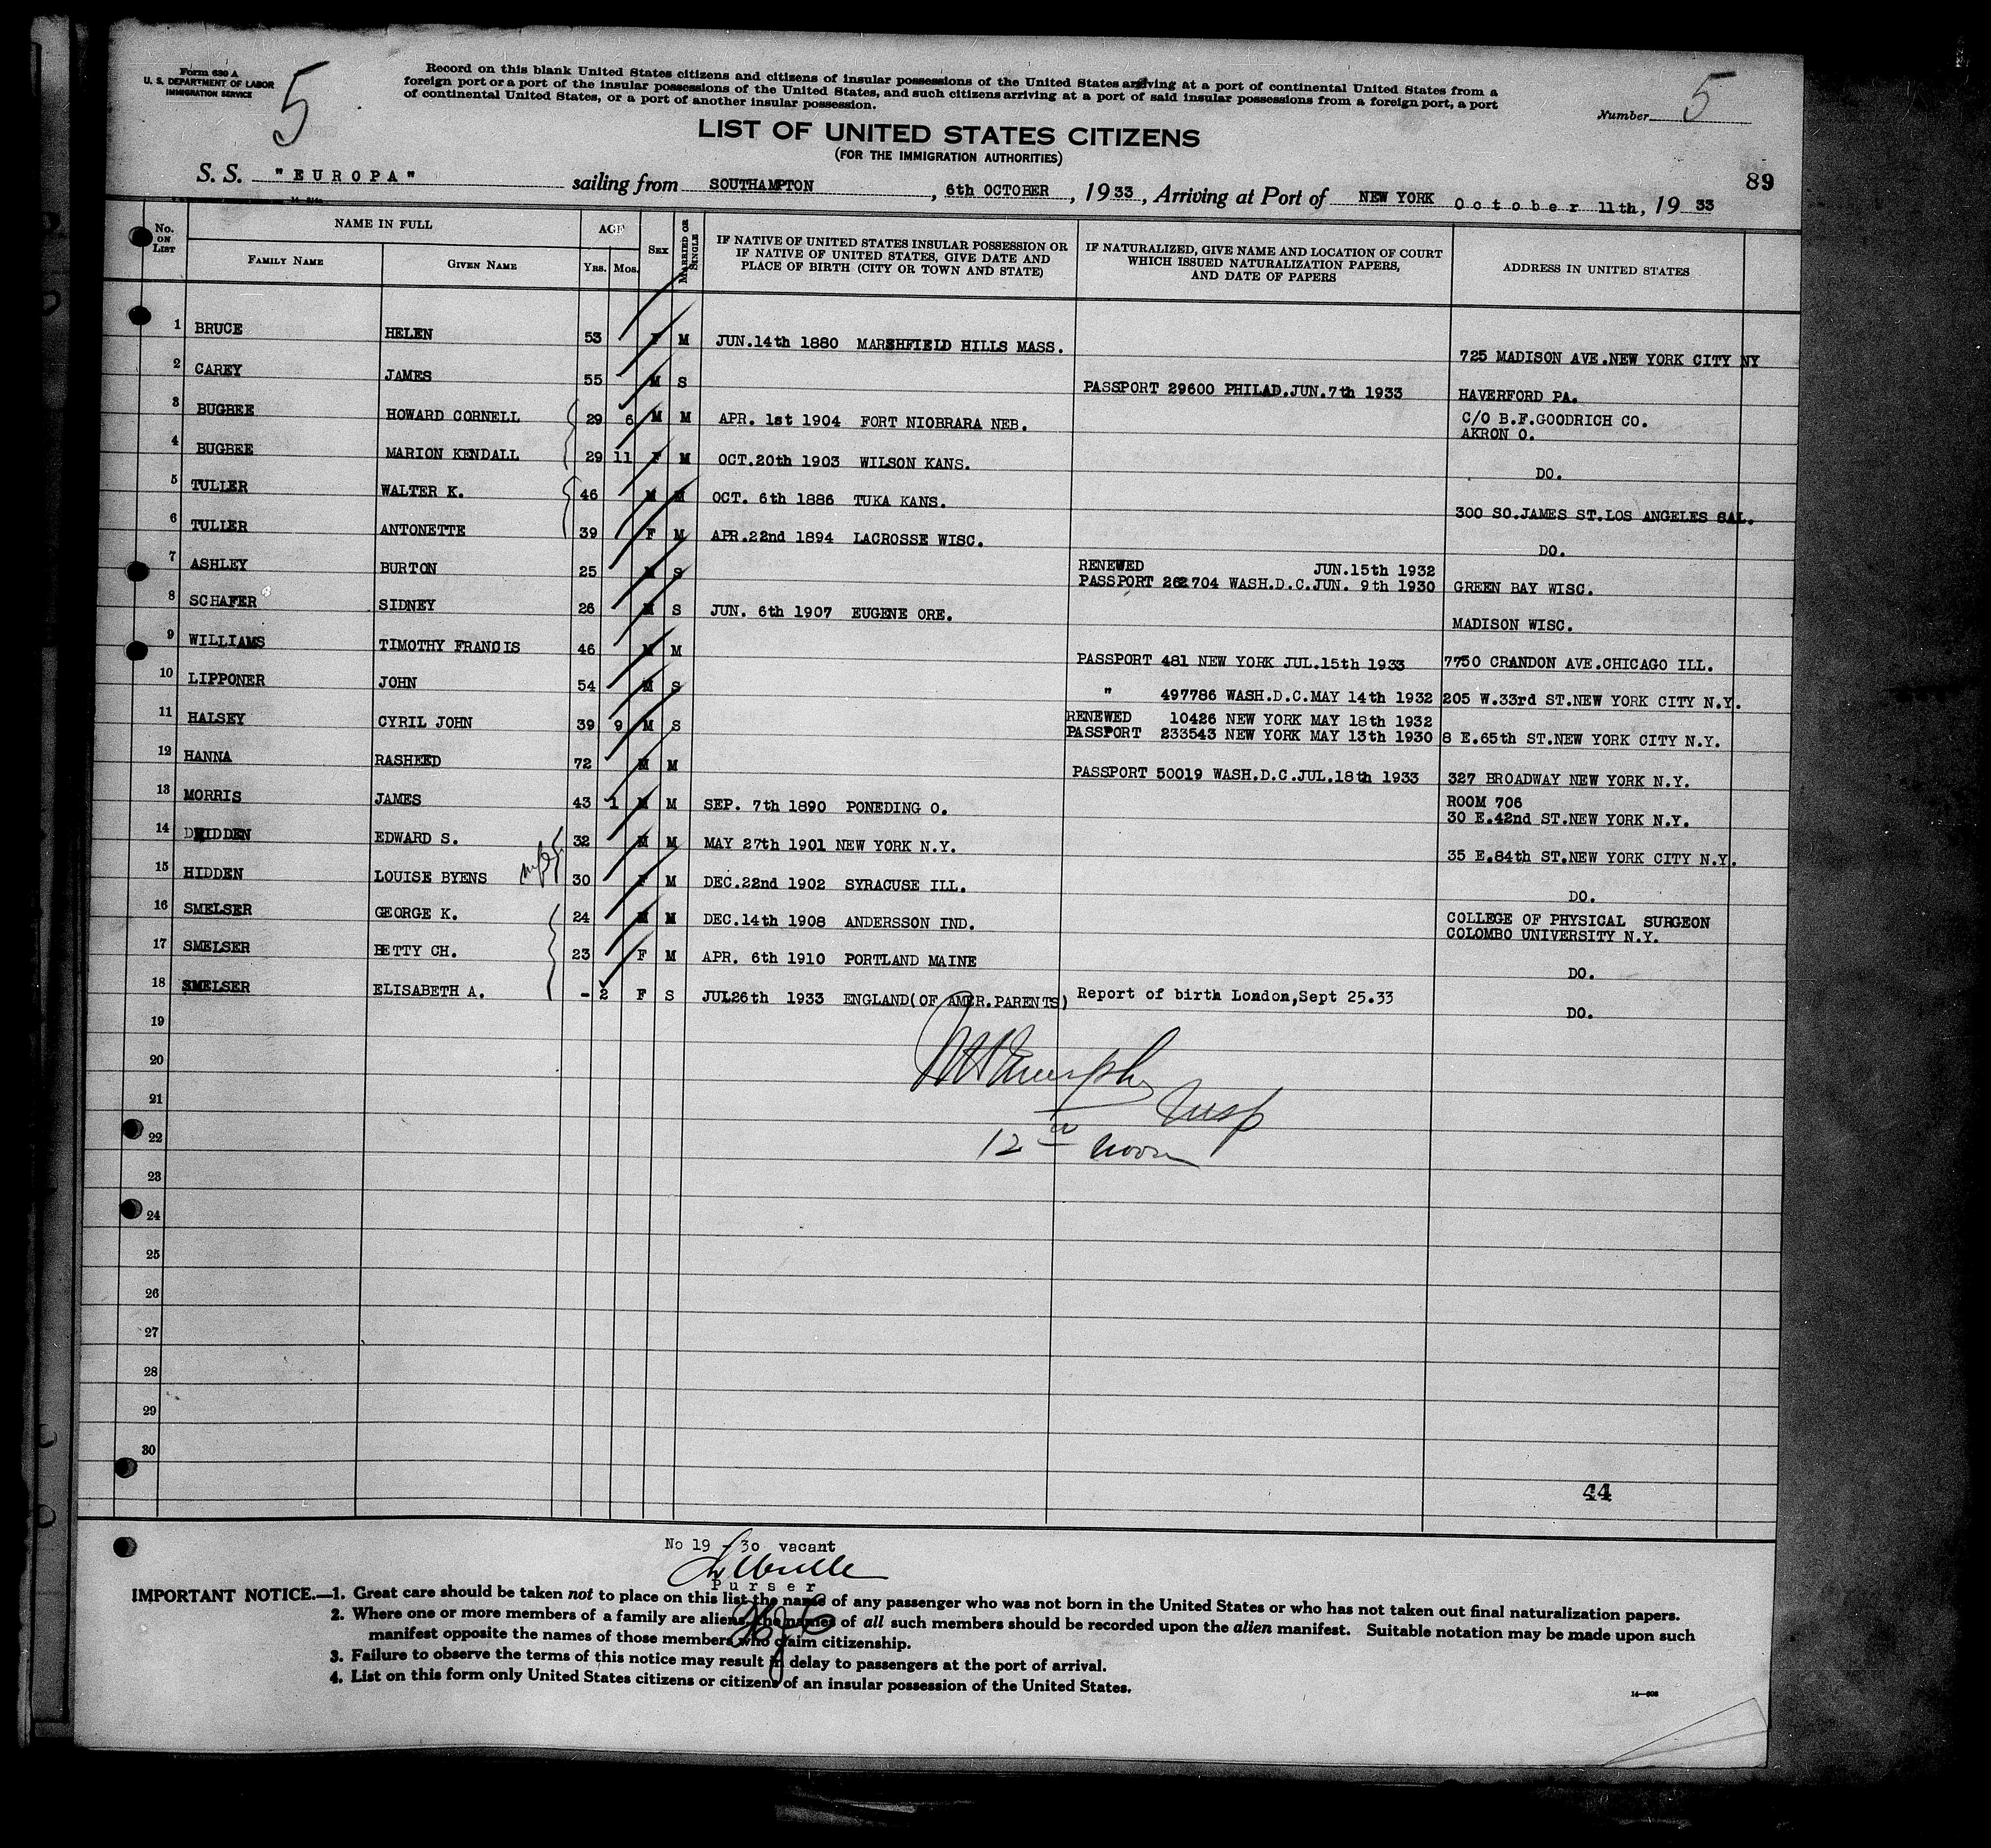 Form 630 A
U. S. DEPARTMENT OF LABOR
IMMIGRATION SERVICE
5
Record on this blank United States citizens and citizens of insular possessions of the United States arriving at a port of continental United States from a
foreign port or a port of the insular possessions of the United States, and such citizens arriving at a port of said insular possessions from a foreign port, a port
of continental United States, or a port of another insular possession.
Number 5
LIST OF UNITED STATES CITIZENS
(FOR THE IMMIGRATION AUTHORITIES)
89
S. S. "EUROPA" sailing from SOUTHAMPTON, 6th OCTOBER, 1933, Arriving at Port of NEW YORK October 11th, 1933
No. ON LIST
NAME IN FULL
FAMILY NAME GIVEN NAME
AGE
Yrs. Mos.
SEX
MARRIED OR SINGLE
IF NATIVE OF UNITED STATES INSULAR POSSESSION OR
IF NATIVE OF UNITED STATES, GIVE DATE AND
PLACE OF BIRTH (CITY OR TOWN AND STATE)
IF NATURALIZED, GIVE NAME AND LOCATION OF COURT
WHICH ISSUED NATURALIZATION PAPERS,
AND DATE OF PAPERS
ADDRESS IN UNITED STATES
1 BRUCE HELEN 53 F M JUN.14th 1880 MARSHFIELD HILLS MASS. 725 MADISON AVE.NEW YORK CITY NY
2 CAREY JAMES 55 M S PASSPORT 29600 PHILAD.JUN.7th 1933 HAVERFORD PA.
3 BUGBEE HOWARD CORNELL 29 6 M M APR. 1st 1904 FORT NIOBRARA NEB. C/O B.F.GOODRICH CO.
AKRON O.
4 BUGBEE MARION KENDALL 29 11 F M OCT.20th 1903 WILSON KANS. DO.
5 TULLER WALTER K. 46 M M OCT. 6th 1886 TUKA KANS. 300 SO.JAMES ST.LOS ANGELES CAL.
6 TULLER ANTONETTE 39 F M APR.22nd 1894 LACROSSE WISC. DO.
7 ASHLEY BURTON 25 M S RENEWED JUN.15th 1932
PASSPORT 262704 WASH.D.C.JUN. 9th 1930 GREEN BAY WISC.
8 SCHAFER SIDNEY 26 M S JUN. 6th 1907 EUGENE ORE. MADISON WISC.
9 WILLIAMS TIMOTHY FRANCIS 46 M M PASSPORT 481 NEW YORK JUL.15th 1933 7750 CRANDON AVE.CHICAGO ILL.
10 LIPPONER JOHN 54 M S " 497786 WASH.D.C.MAY 14th 1932 205 W.33rd ST.NEW YORK CITY N.Y.
11 HALSEY CYRIL JOHN 39 9 M S RENEWED 10426 NEW YORK MAY 18th 1932
PASSPORT 233543 NEW YORK MAY 13th 1930 8 E.65th ST.NEW YORK CITY N.Y.
12 HANNA RASHEED 72 M M PASSPORT 50019 WASH.D.C.JUL.18th 1933 327 BROADWAY NEW YORK N.Y.
13 MORRIS JAMES 43 1 M M SEP. 7th 1890 PONEDING O. ROOM 706
30 E.42nd ST.NEW YORK N.Y.
14 HIDDEN EDWARD S. 32 M M MAY 27th 1901 NEW YORK N.Y. 35 E.84th ST.NEW YORK CITY N.Y.
15 HIDDEN LOUISE BYENS 30 F M DEC.22nd 1902 SYRACUSE ILL. DO.
16 SMELSER GEORGE K. 24 M M DEC.14th 1908 ANDERSSON IND. COLLEGE OF PHYSICAL SURGEON
COLOMBO UNIVERSITY N.Y.
17 SMELSER BETTY CH. 23 F M APR. 6th 1910 PORTLAND MAINE DO.
18 SMELSER ELISABETH A. - 2 F S JUL26th 1933 ENGLAND(OF AMER.PARENTS) Report of birth London,Sept 25.33 DO.
19
20
Murphy
21
Insp
22
12 noon
23
24
25
26
27
28
29
30
44
No 19 - 30 vacant
Purser
IMPORTANT NOTICE.—1. Great care should be taken not to place on this list the name of any passenger who was not born in the United States or who has not taken out final naturalization papers.
2. Where one or more members of a family are aliens, the names of all such members should be recorded upon the alien manifest. Suitable notation may be made upon such
manifest opposite the names of those members who claim citizenship.
3. Failure to observe the terms of this notice may result in delay to passengers at the port of arrival.
4. List on this form only United States citizens or citizens of an insular possession of the United States.
14—808